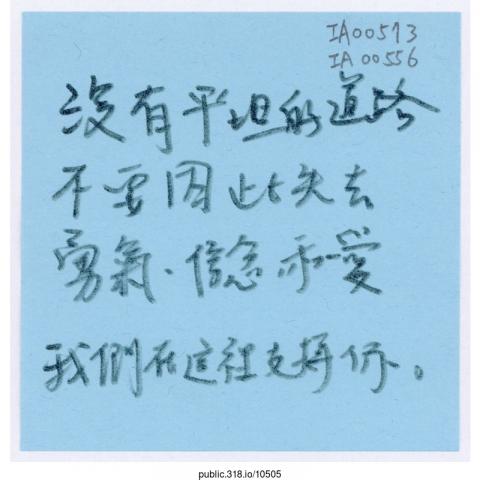 IA00573
IA00556
沒有平坦的道路
不要因此失去
勇氣、信念和愛
我們在這裡支持你。
public.318.io/10505